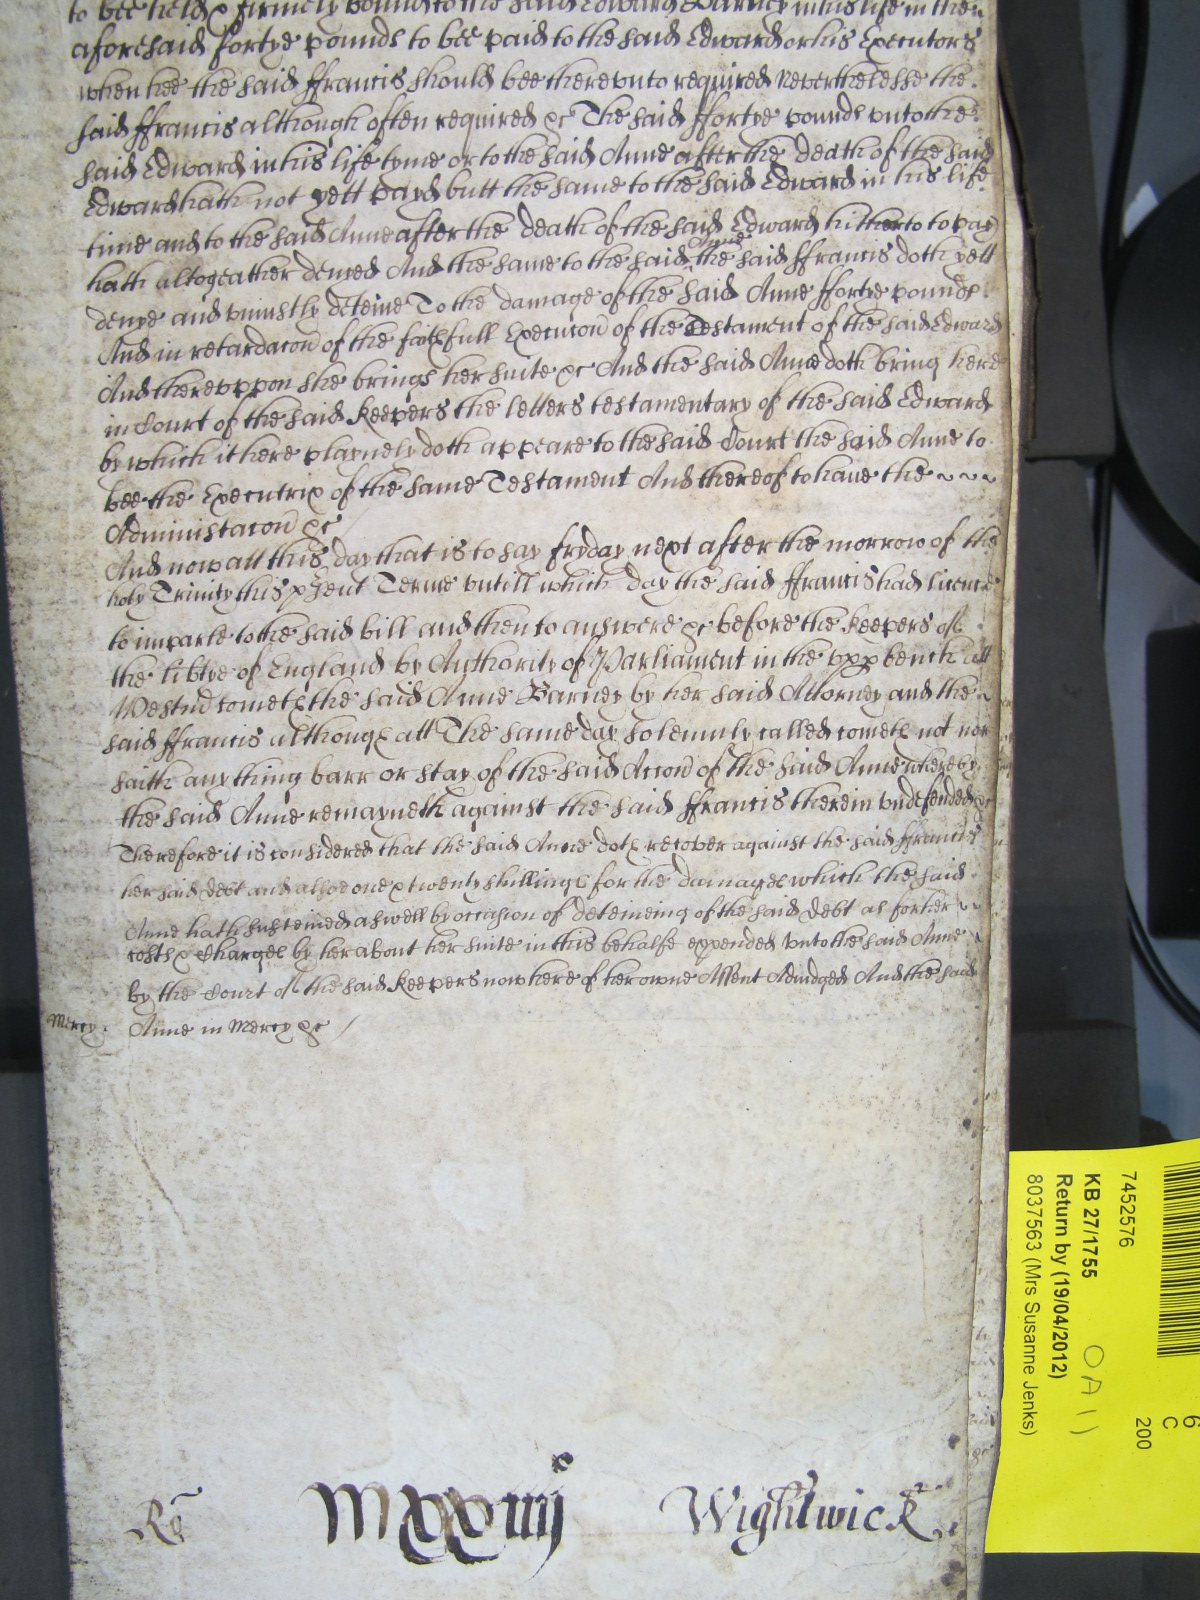 to bee held & firmely bound to the said Edward Barney in his life in the
aforesaid fortye pounds to bee paid to the said Edward or his Executors
when hee the said ffrancis should bee therevnto required Neverthelesse the
said ffrancis although often required &c The said ffortye pounds vnto the
said Edward in his life tyme or to the said Anne after the death of the said
Edward hath not yett payd butt the same to the said Edward in his life
time and to the said Anne after the death of the said Edward hitherto to pay
hath altogeather denyed And the same to the said Anne the said ffrancis doth yett
denye and vniustly deteine To the damage of the said Anne ffortye pounds
And in retardacon of the faithfull Execucon of the Testament of the said Edward
And therevppon she brings her suite &c And the said Anne doth bring here
in Court of the said Keepers the letters testamentary of the said Edward
by which it here playnely doth appeare to the said Court the said Anne to
bee the Executrix of the same Testament And thereof to haue the
Administacon &c
And now att this day that is to say fryday next after the morrow of the
holy Trinity this psent Terme vntill which day the said ffrancis had licence
to imparle to the said bill and then to answere &c before the Keepers of
the libtye of England by Authority of Parliament in the vpp bench att
Westm cometh the said Anne Barney by her said Attorney and the
said ffrancis although att The same day solemnly called cometh not nor
saith any thing barr or stay of the said Accon of the said Anne whereby
the said Anne remayneth against the said ffrancis therein vndefended &c
Therefore it is considered that the said Anne doth recover against the said ffrancis
her said debt and allsoe one & twenty shillings for the damages which the said
Anne hath susteined aswell by occasion of deteineing of the said debt as for her
costs & Charges by her about her suite in this behalfe expended vnto the said Anne
by the Court of the said Keepers now here of her owne Assent Adiudged And the said
Mercy. Anne in Mercy &c /
Ro MXXiiij Wightwick
7452576
KB 27/1755
Return by (19/04/2012)
8037563 (Mrs Susanne Jenks)
OA 11
6
C
200